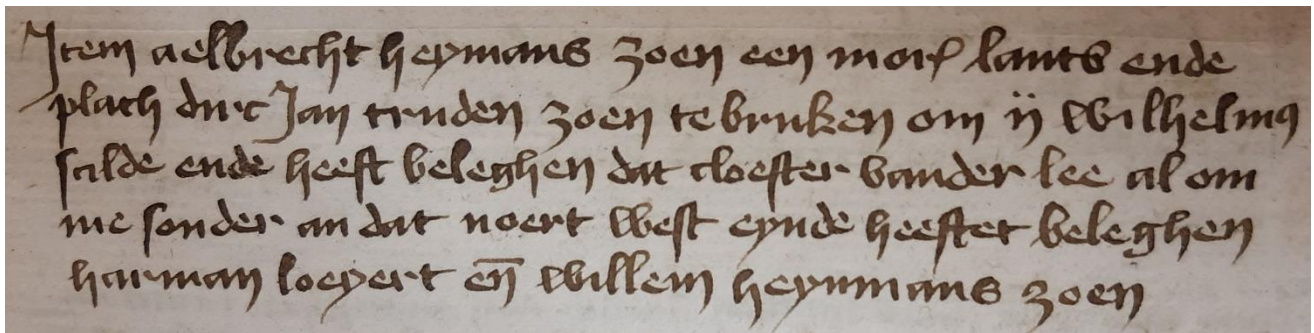 Item aelbrecht heymans zoen een morg lants ende
plach dirc Jan truden zoen te bruken om ij wilhelmus
scilde ende heeft beleghen dat cloester vander lee al om
me sonder an dat noert west eynde heeftet beleghen
harman loeyert en̄ willem heynmans zoen